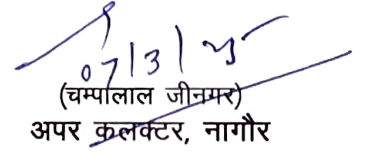 07/3/25
(चम्पालाल जीनगर)
अपर कलक्टर, नागौर